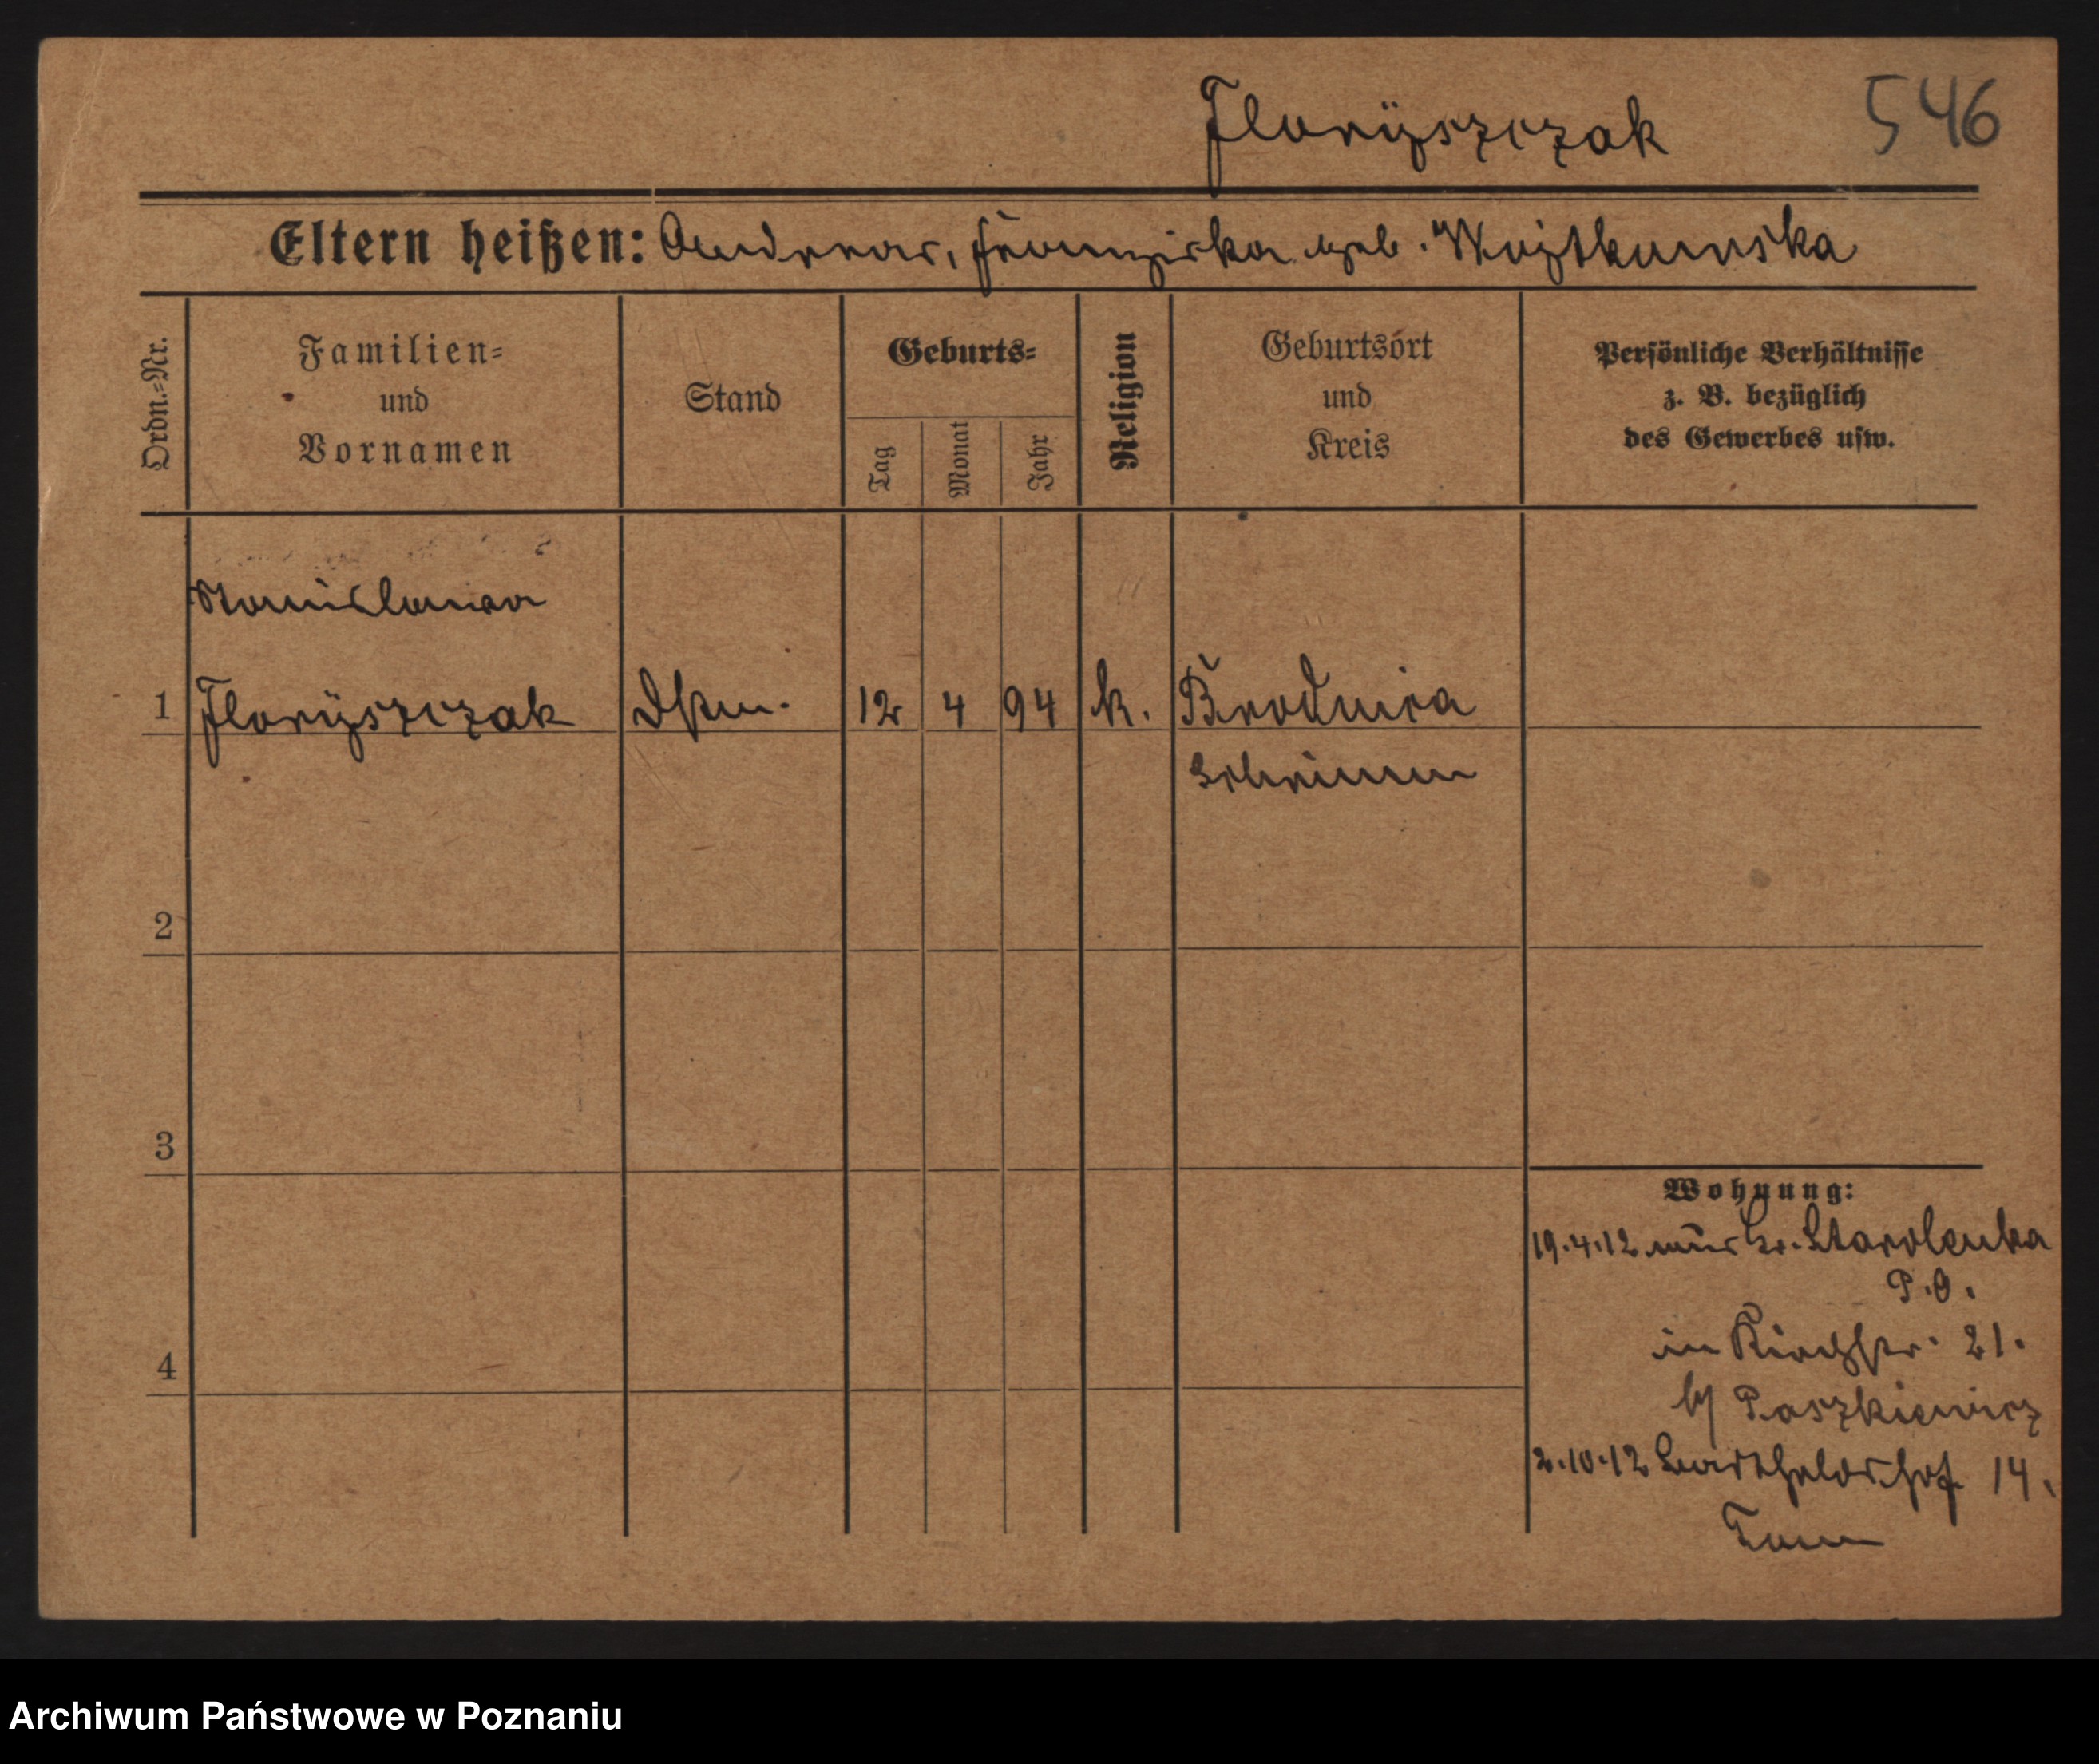 Floryszczak 546
Eltern heißen: Andreas, Franziska geb. Wojtkowska
Ordn.=Nr.
Familien=
und
Vornamen
Stand
Geburts=
Tag
Monat
Jahr
Religion
Geburtsort
und
Kreis
Persönliche Verhältnisse
z. B. bezüglich
des Gewerbes usw.
Stanislawa
1 Floryszczak Dstm. 12 4 94 k. Brodnica
Schrimm
2
3
4
Wohnung:
19.4.12 aus Starolenka
P.O.
in Kirchstr. 21.
b/ Paszkiewicz
2.10.12 14.
Archiwum Państwowe w Poznaniu